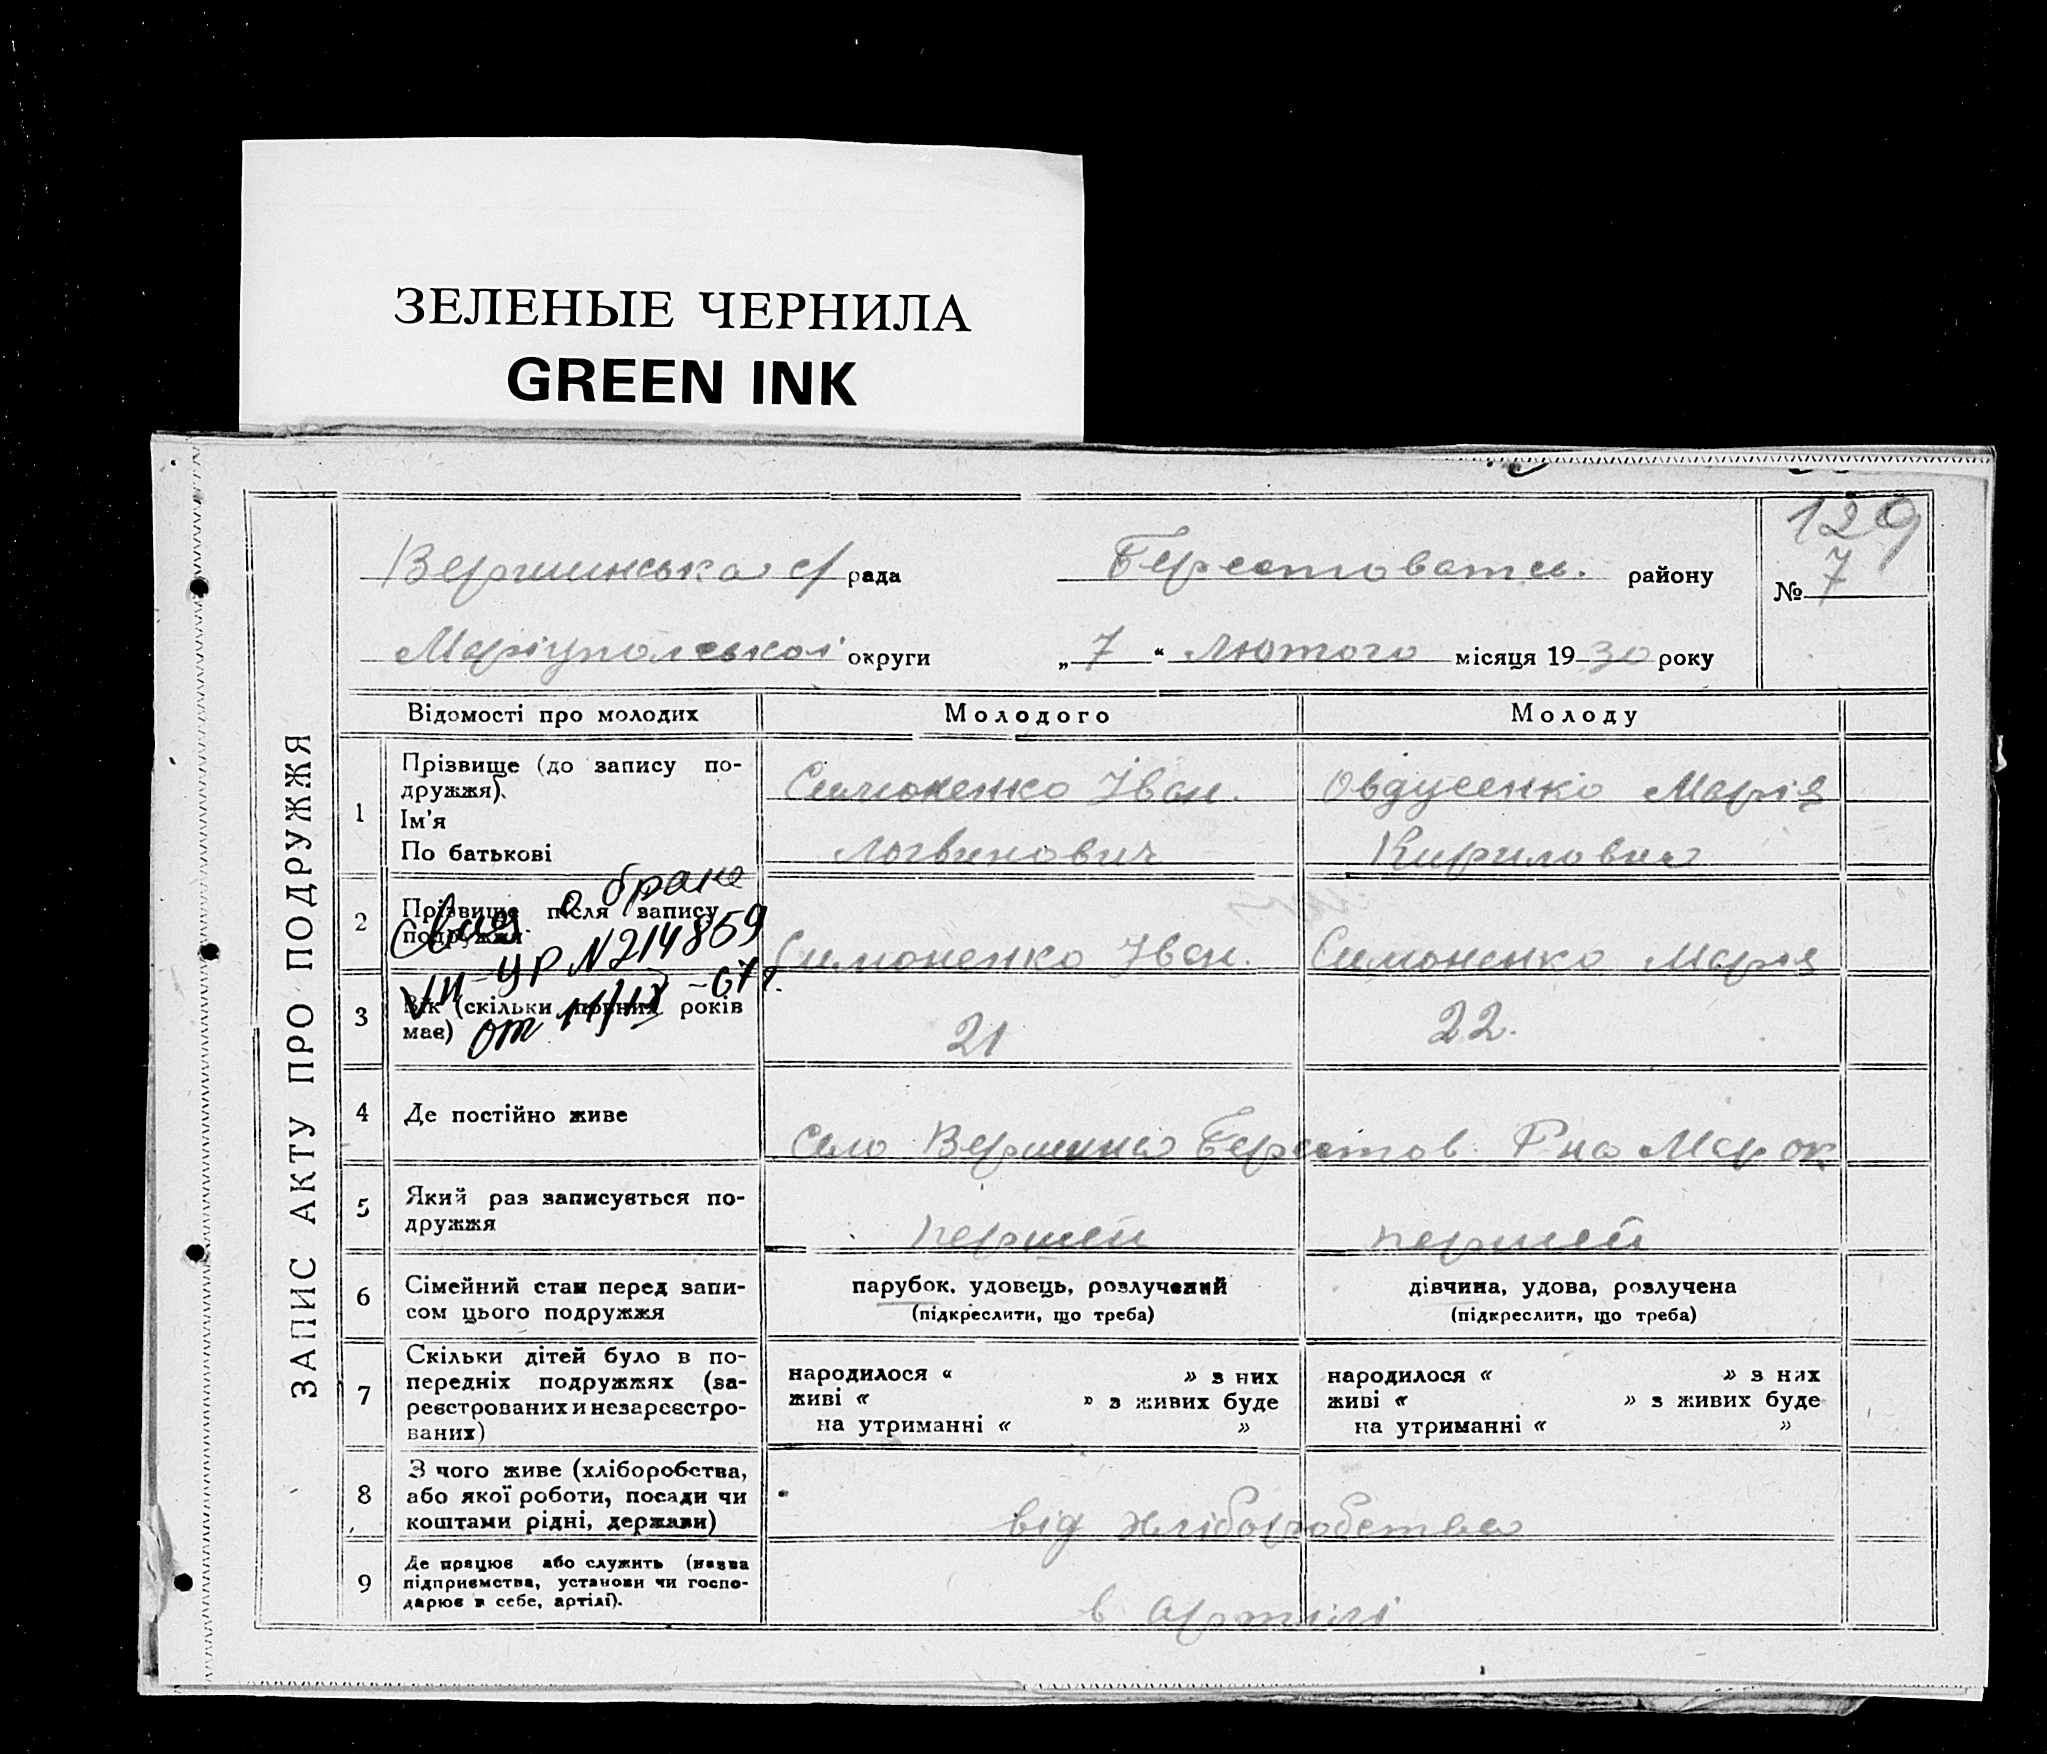 ЗЕЛЕНЫЕ ЧЕРНИЛА
GREEN INK
ЗАПИС АКТУ ПРО ПОДРУЖЖЯ
129
Вершинська с/ рада Берестоватськ. району № 7
Маріупольської округи „ 7 “ лютого місяця 1930 року
Відомості про молодих Молодого Молоду
1 Прізвище (до запису по-
дружжя)
Ім'я
По батькові
Симоненко Іван.
Логвинович
Овдусенко Марія
Кириловна
2 Прізвище після запису
подружжя
Симоненко Іван. Симоненко Марія
Свид. о браке
VII-УР N 214859
от 11/IX -67г.
3 Вік (скільки повних років
має)
21 22.
4 Де постійно живе
Село Вершина Берестов. Р-на Мар ок
5 Який раз записується по-
дружжя
першей першей
6 Сімейний стан перед запи-
сом цього подружжя
парубок, удовець, розлучений
(підкреслити, що треба)
дівчина, удова, розлучена
(підкреслити, що треба)
7 Скільки дітей було в по-
передніх подружжях (за-
реєстрованих и незареєстро-
ваних)
народилося « » з них
живі « » з живих буде
на утриманні « »
народилося « » з них
живі « » з живих буде
на утриманні « »
8 З чого живе (хліборобства,
або якої роботи, посади чи
коштами рідні, держави)
від хліборобства
9 Де працює або служить (назва
підприємства, установи чи госпо-
дарює в себе, артілі).
в Артилі